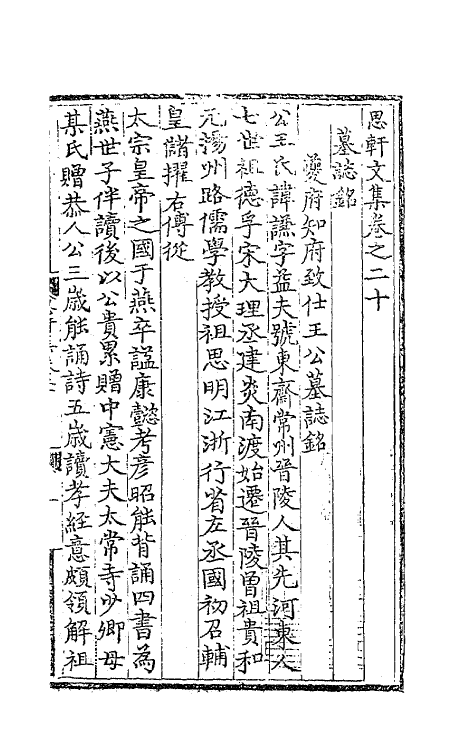 思軒文集卷之二十
墓誌銘
夔府知府致仕王公墓誌銘
公王氏諱讌字益夫號東齋常州晉陵人其先河東人
七世祖德孚宋大理丞建炎南渡始遷晉陵曾祖貴和
元揚州路儒學教授祖思明江浙行省左丞國初召輔
皇儲擢右傅從
太宗皇帝之國于燕卒謚康懿考彦昭能背誦四書為
燕世子伴讀後以公貴累贈中憲大夫太常寺少卿母
某氏贈恭人公三歲能誦詩五歲讀孝經意頗領解祖